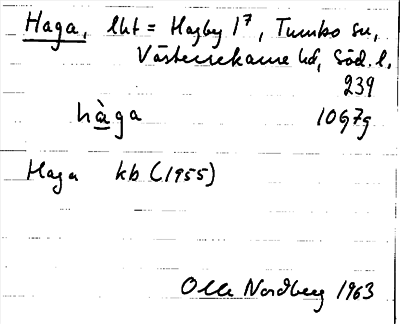 Haga, lht = Hagby 1⁷, Tumbo sn,
Västerrekarne hd, Söd. l.
239
hàga 10G7g
Haga kb (1955)
Olle Nordberg 1963